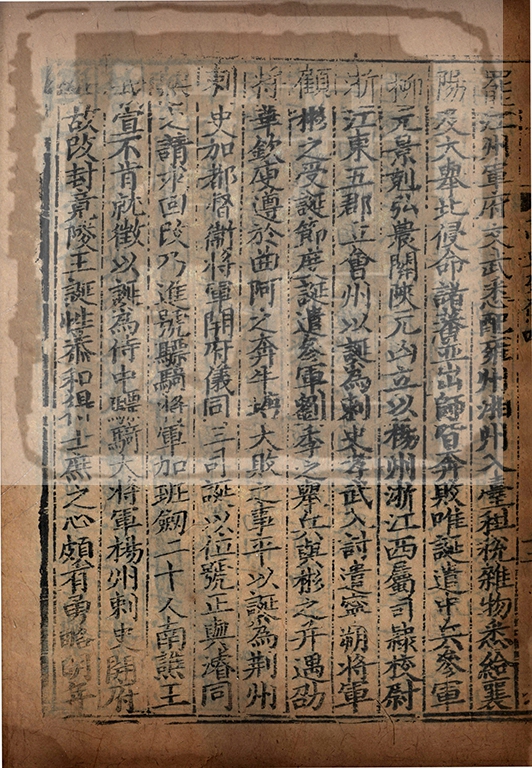 罷江州軍府文武悉配雍州湘州入臺租稅雜物悉給襄
陽及大舉此侵命諸蕃並出師皆奔敗唯誕遣中兵參軍
柳元景剋弘農關陝元凶立以楊州浙江西屬司隸校尉
浙江東五郡立會州以誕為刺史孝武入討遣寧朔將軍
顧彬之受誕節度誕遣參軍劉季之舉兵與彬之并遇劭
將華欽庾遵於曲阿之奔牛塘大敗之事平以誕為荆州
刺史加都督衞將軍開府儀同三司誕以位號正與濬同
惡之請求回改乃進號驃騎將軍加班劒二十人南譙王
義宣不肯就徵以誕為侍中驃騎大將軍楊州刺史開府
故改封竟陵王誕性恭和得士庶之心頗有勇略明年